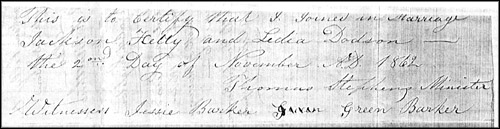 This is to Certify that I Joined in Marriage
Jackson Kelly and Ledia Dodson —
the 2nd Day of November A.D. 1862
Thomas Stephens Minister
Witnesses Jessie Barker Green Barker